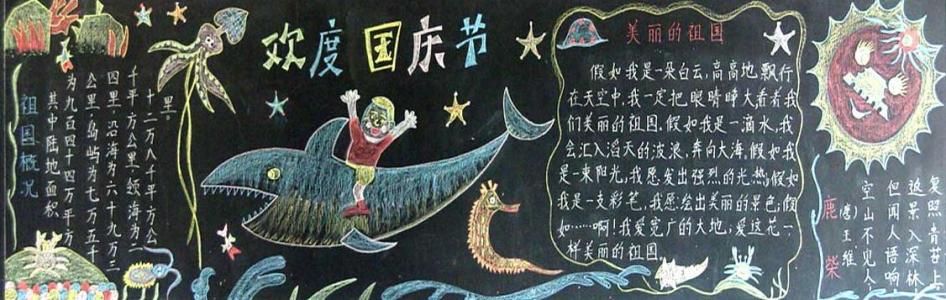 欢度国庆节
祖国概况
其中陆地面积
为九百四十四万平方
公里,岛屿为七万五千
四里,沿海为六十九万三
千平方公里,领海为二
十二万八千平方公
里
美丽的祖国
假如我是一朵白云,高高地飘行
在天空中,我一定把眼睛睁大看看我
们美丽的祖国.假如我是一滴水,我
会汇入滔天的波浪,奔向大海,假如我
是一束阳光,我愿发出强烈的光热;假如
我是一支彩笔,我愿绘出美丽的景色;假
如……啊!我爱宽广的大地;爱这花一
样美丽的祖国
鹿柴
(唐)王维
空山不见人
但闻人语响
返景入深林
复照青苔上